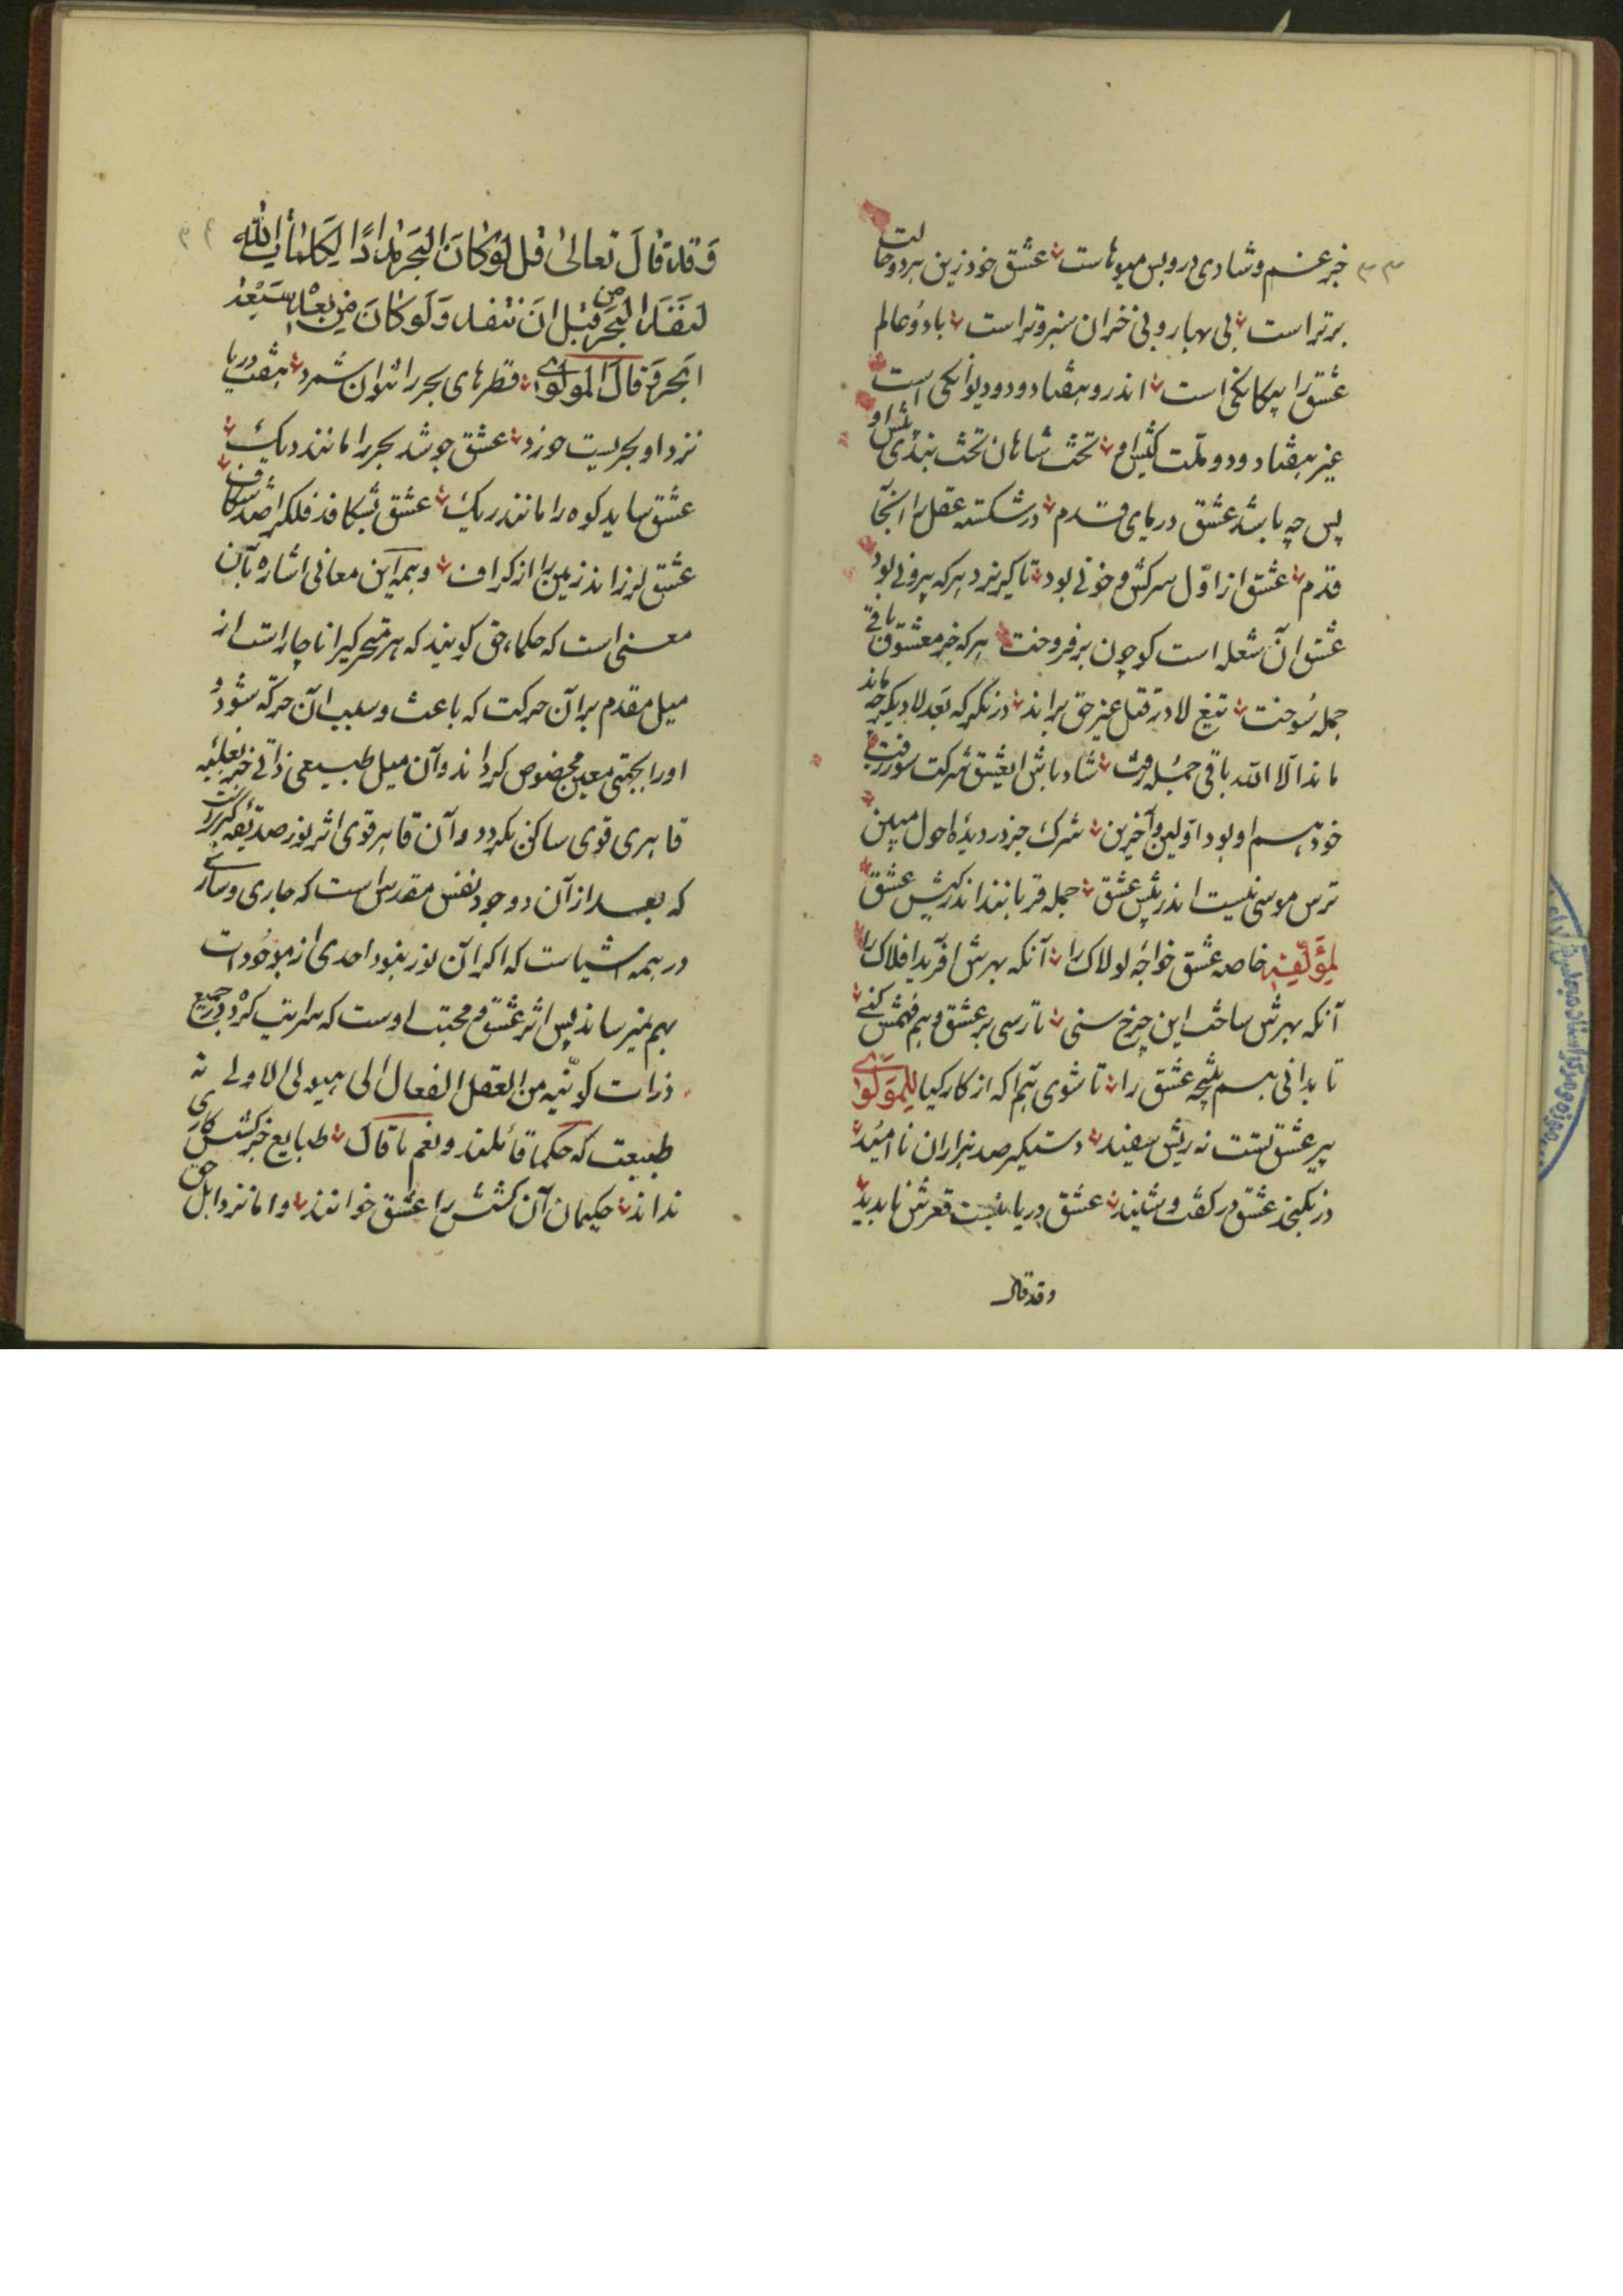 ۳۳
جز غم و شادی درو بس میوهاست عشق خود زین هر دو حالت
برتر است بی بهار و بی خزان سبز و تر است با دو عالم
عشق را بیکانکی است اندرو هفتاد و دو دیوانکی است
غیر هفتاد و دو ملت کیش او تخت شاهان تخته بندی پیش او
پس چه باشد عشق دریای قدم در شکسته عقل را آنجا
قدم عشق از اوّل سرکش و خونی بود تا کریزد هرکه بیرونی بود
عشق آن شعله است کو چون برفروخت هرکه جز معشوق باقی
جمله سوخت تیغ لا در قتل غیر حق براند درنکر که بعد لا دیکر چه ماند
ماند الا الله باقی جمله رفت شاد باش ای عشق شرکت سوز زفت
خود هم او بود اولین و آخرین شرک جز در دیدهٔ احول مبین
ترس موسی نیست اندر پیش عشق جمله قربانند اندر کیش عشق
لمؤلفه خاصه عشق خواجه لولاک را آنکه بهرش آفرید افلاک را
آنکه بهرش ساخت این چرخ سنی تا رسی بر عشق و هم فهمش کنی
تا بدانی هم نتیجه عشق را تا شوی تو آکه از کار کیا للمولوی
پیر عشق تست نه ریش سفید دستکیر صد هزاران ناامید
درنکنجد عشق در کفت و شنید عشق دریائیست قعرش ناپدید
وقد قال
۳۴
وَقَد قالَ تعالیٰ قل لَو کانَ البَحرُ مِدادًا لِکَلماتِ الله
لنَفَدَ البَحرُ قبل ان تنفد وَلَو کانَ مِن بعدِه سَبعَة
ابحر وَقالَ المولوی قطرهای بحر را نتوان شمرد هفت دریا
نزد او بحریست خورد عشق جوشد بحر را مانند دیک
عشق ساید کوه را مانند ریک عشق بشکافد فلک را صد شکاف
عشق لرزاند زمین را از کزاف و همه این معانی اشاره بآن
معنی است که حکماء حق کویند که هر متحرکیرا ناچار است از
میل مقدم بر آن حرکت که باعث و سبب آن حرکه شود و
اورا بجهتی معین مخصوص کرداند و آن میل طبیعی ذاتی جز بغلبه
قاهری قوی ساکن نکردد و آن قاهر قوی اثر نور صدیقه کبری است
که بعد از آن دو وجود نفس مقدس است که جاری و ساری
در همه اشیاست که اکر آن نور نبود احدی از موجودات
بهم نمیرساند پس اثر عشق و محبت اوست که سرایت کرده در جمیع
ذرات کونیّه من العقل الفعال الی هیولی الاولی نه
طبیعت که حکما قائلند و نعم ما قال طبایع جز کشش کاری
ندانند حکیمان آن کشش را عشق خوانند و اما نزد اهل حق